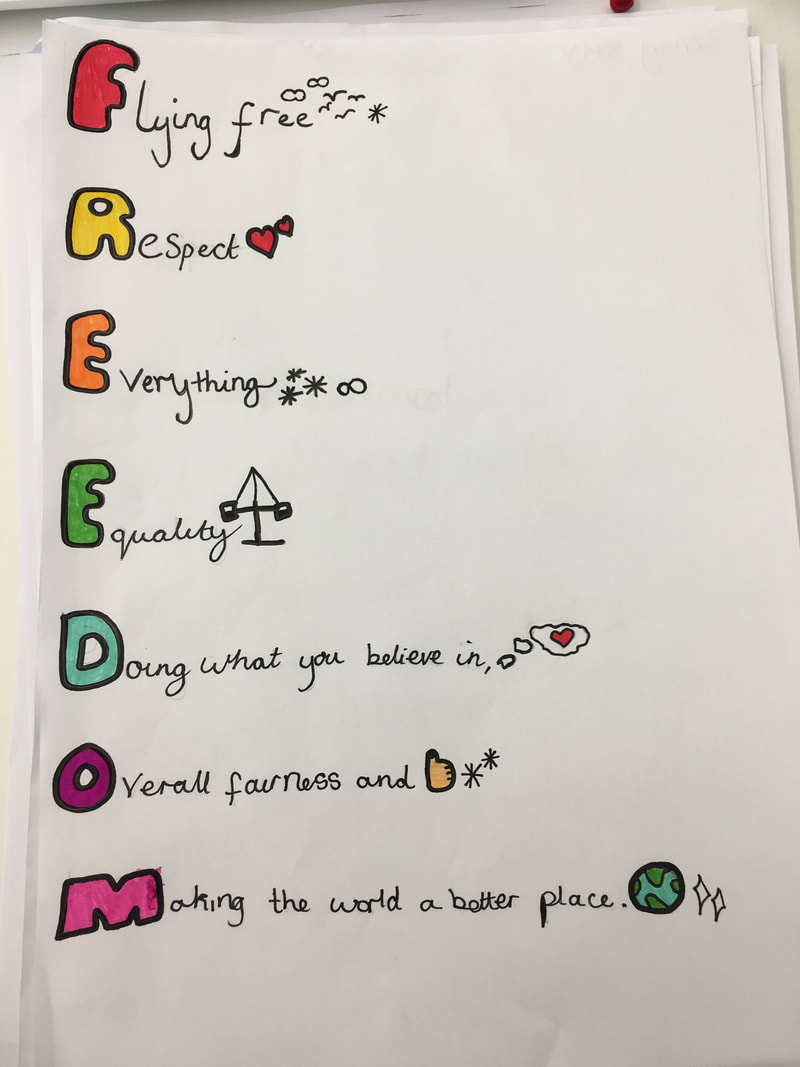 Flying free
Respect
Everything
Equality
Doing what you believe in,
Overall fairness and
Making the world a better place.